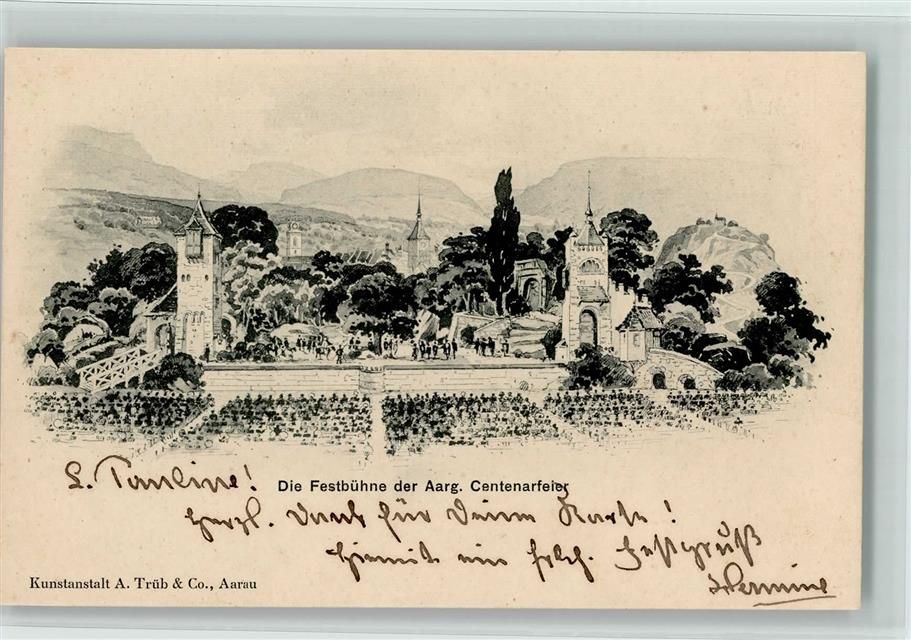 L. Pauline!
Die Festbühne der Aarg. Centenarfeier
Herzl. Dank für Deine Karte!
Hiemit ein frhl. Festgruß
Hermine
Kunstanstalt A. Trüb & Co., Aarau